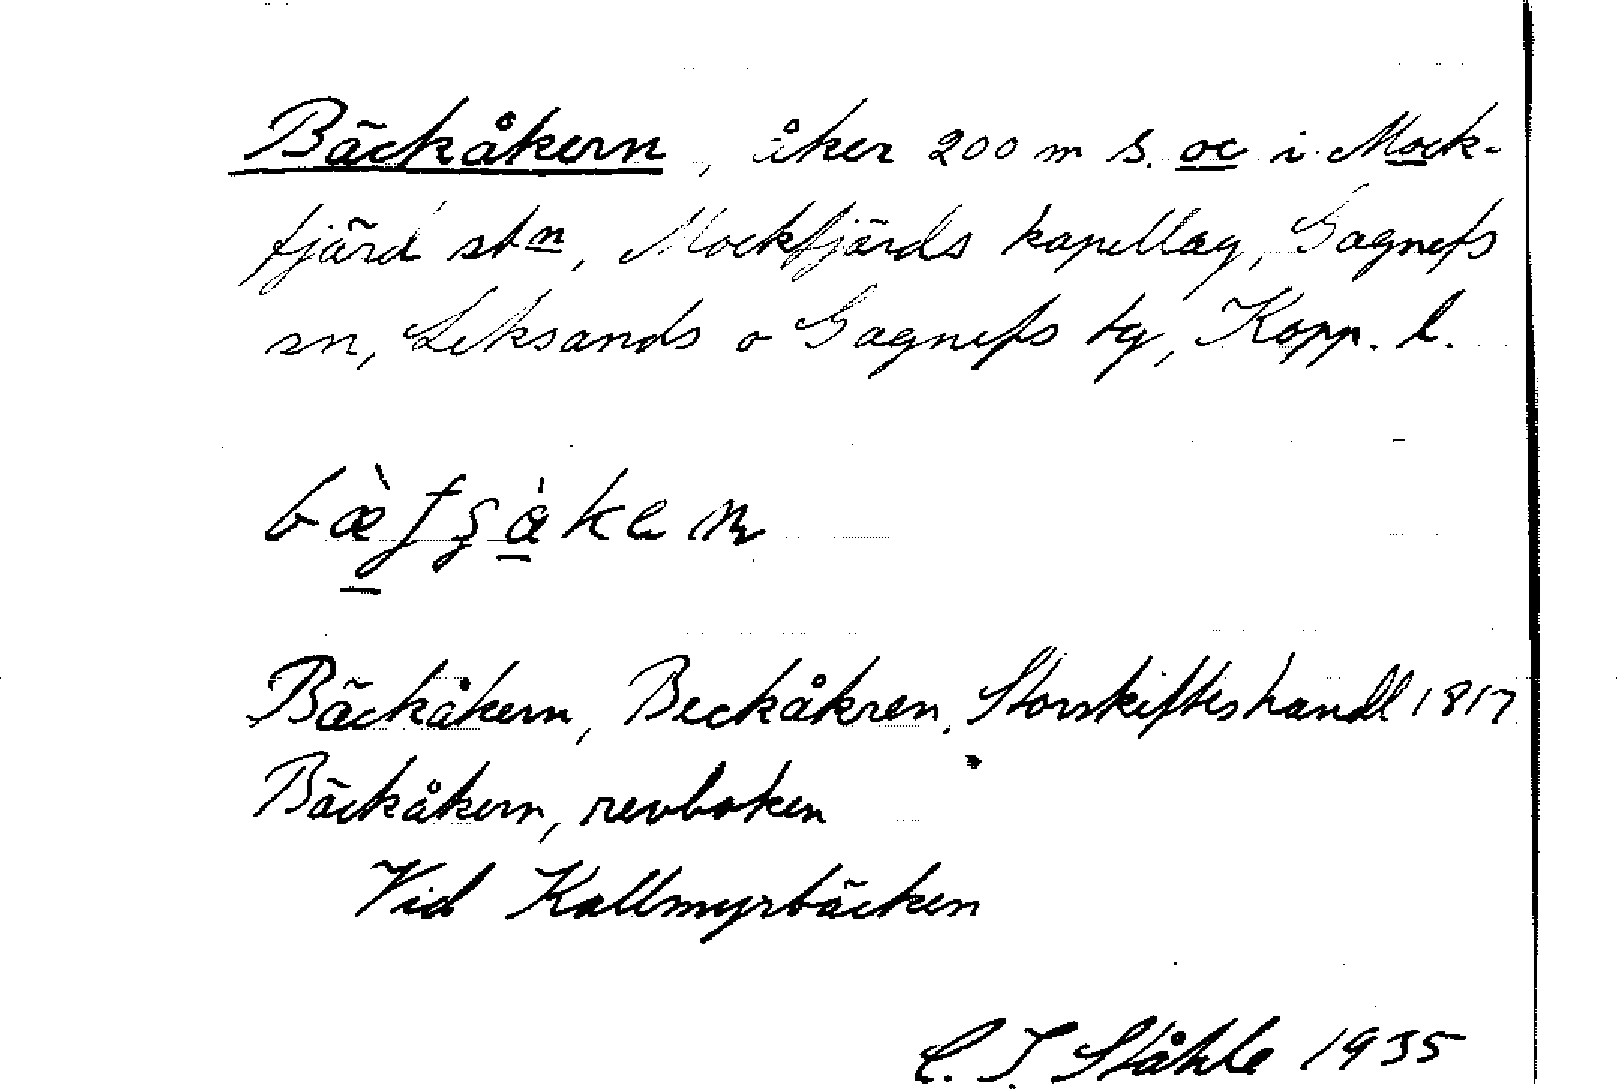 Bäckåkern, åker 200 m S. oc i Mock-
fjärd stn, Mockfjärds kapellag, Gagnefs
sn, Leksands o Gagnefs tg, Kopp. l.
Bäckåkern, Beckåkren, Storskifteshandl 1817
Bäckåkern, revboken
Vid Kallmyrbäcken
C. I. Ståhle 1935